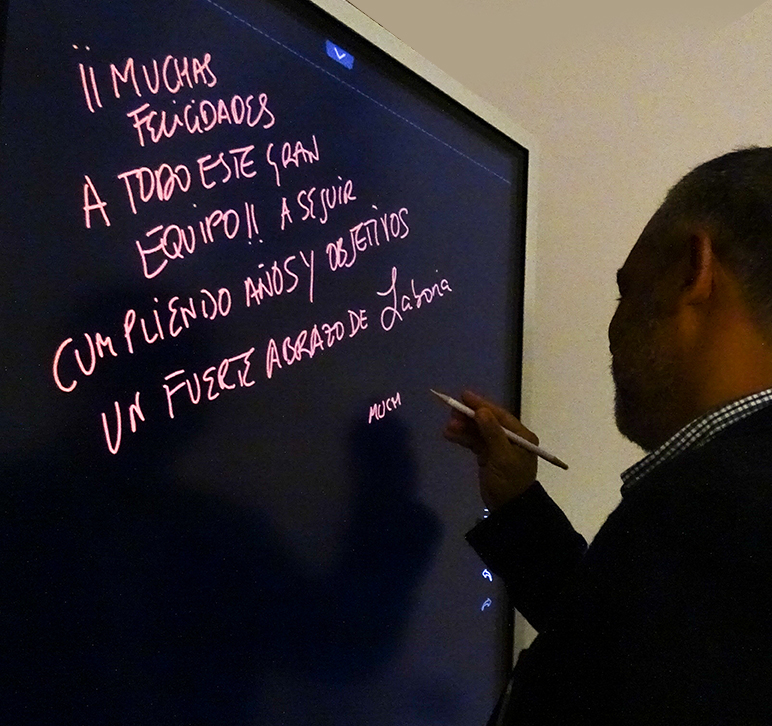 ¡¡MUCHAS
FELICIDADES
A TODO ESTE GRAN
EQUIPO!! A SEGUIR
CUMPLIENDO AÑOS Y OBJETIVOS
UN FUERTE ABRAZO DE Laboria
MUCH